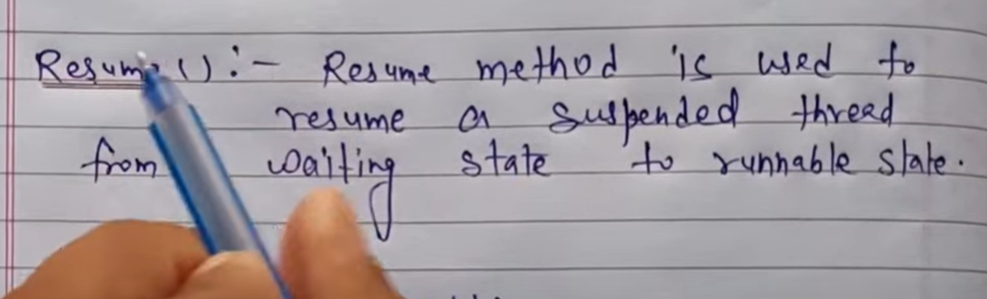 Resume() :- Resume method is used to
resume a suspended thread
from waiting state to runnable state.